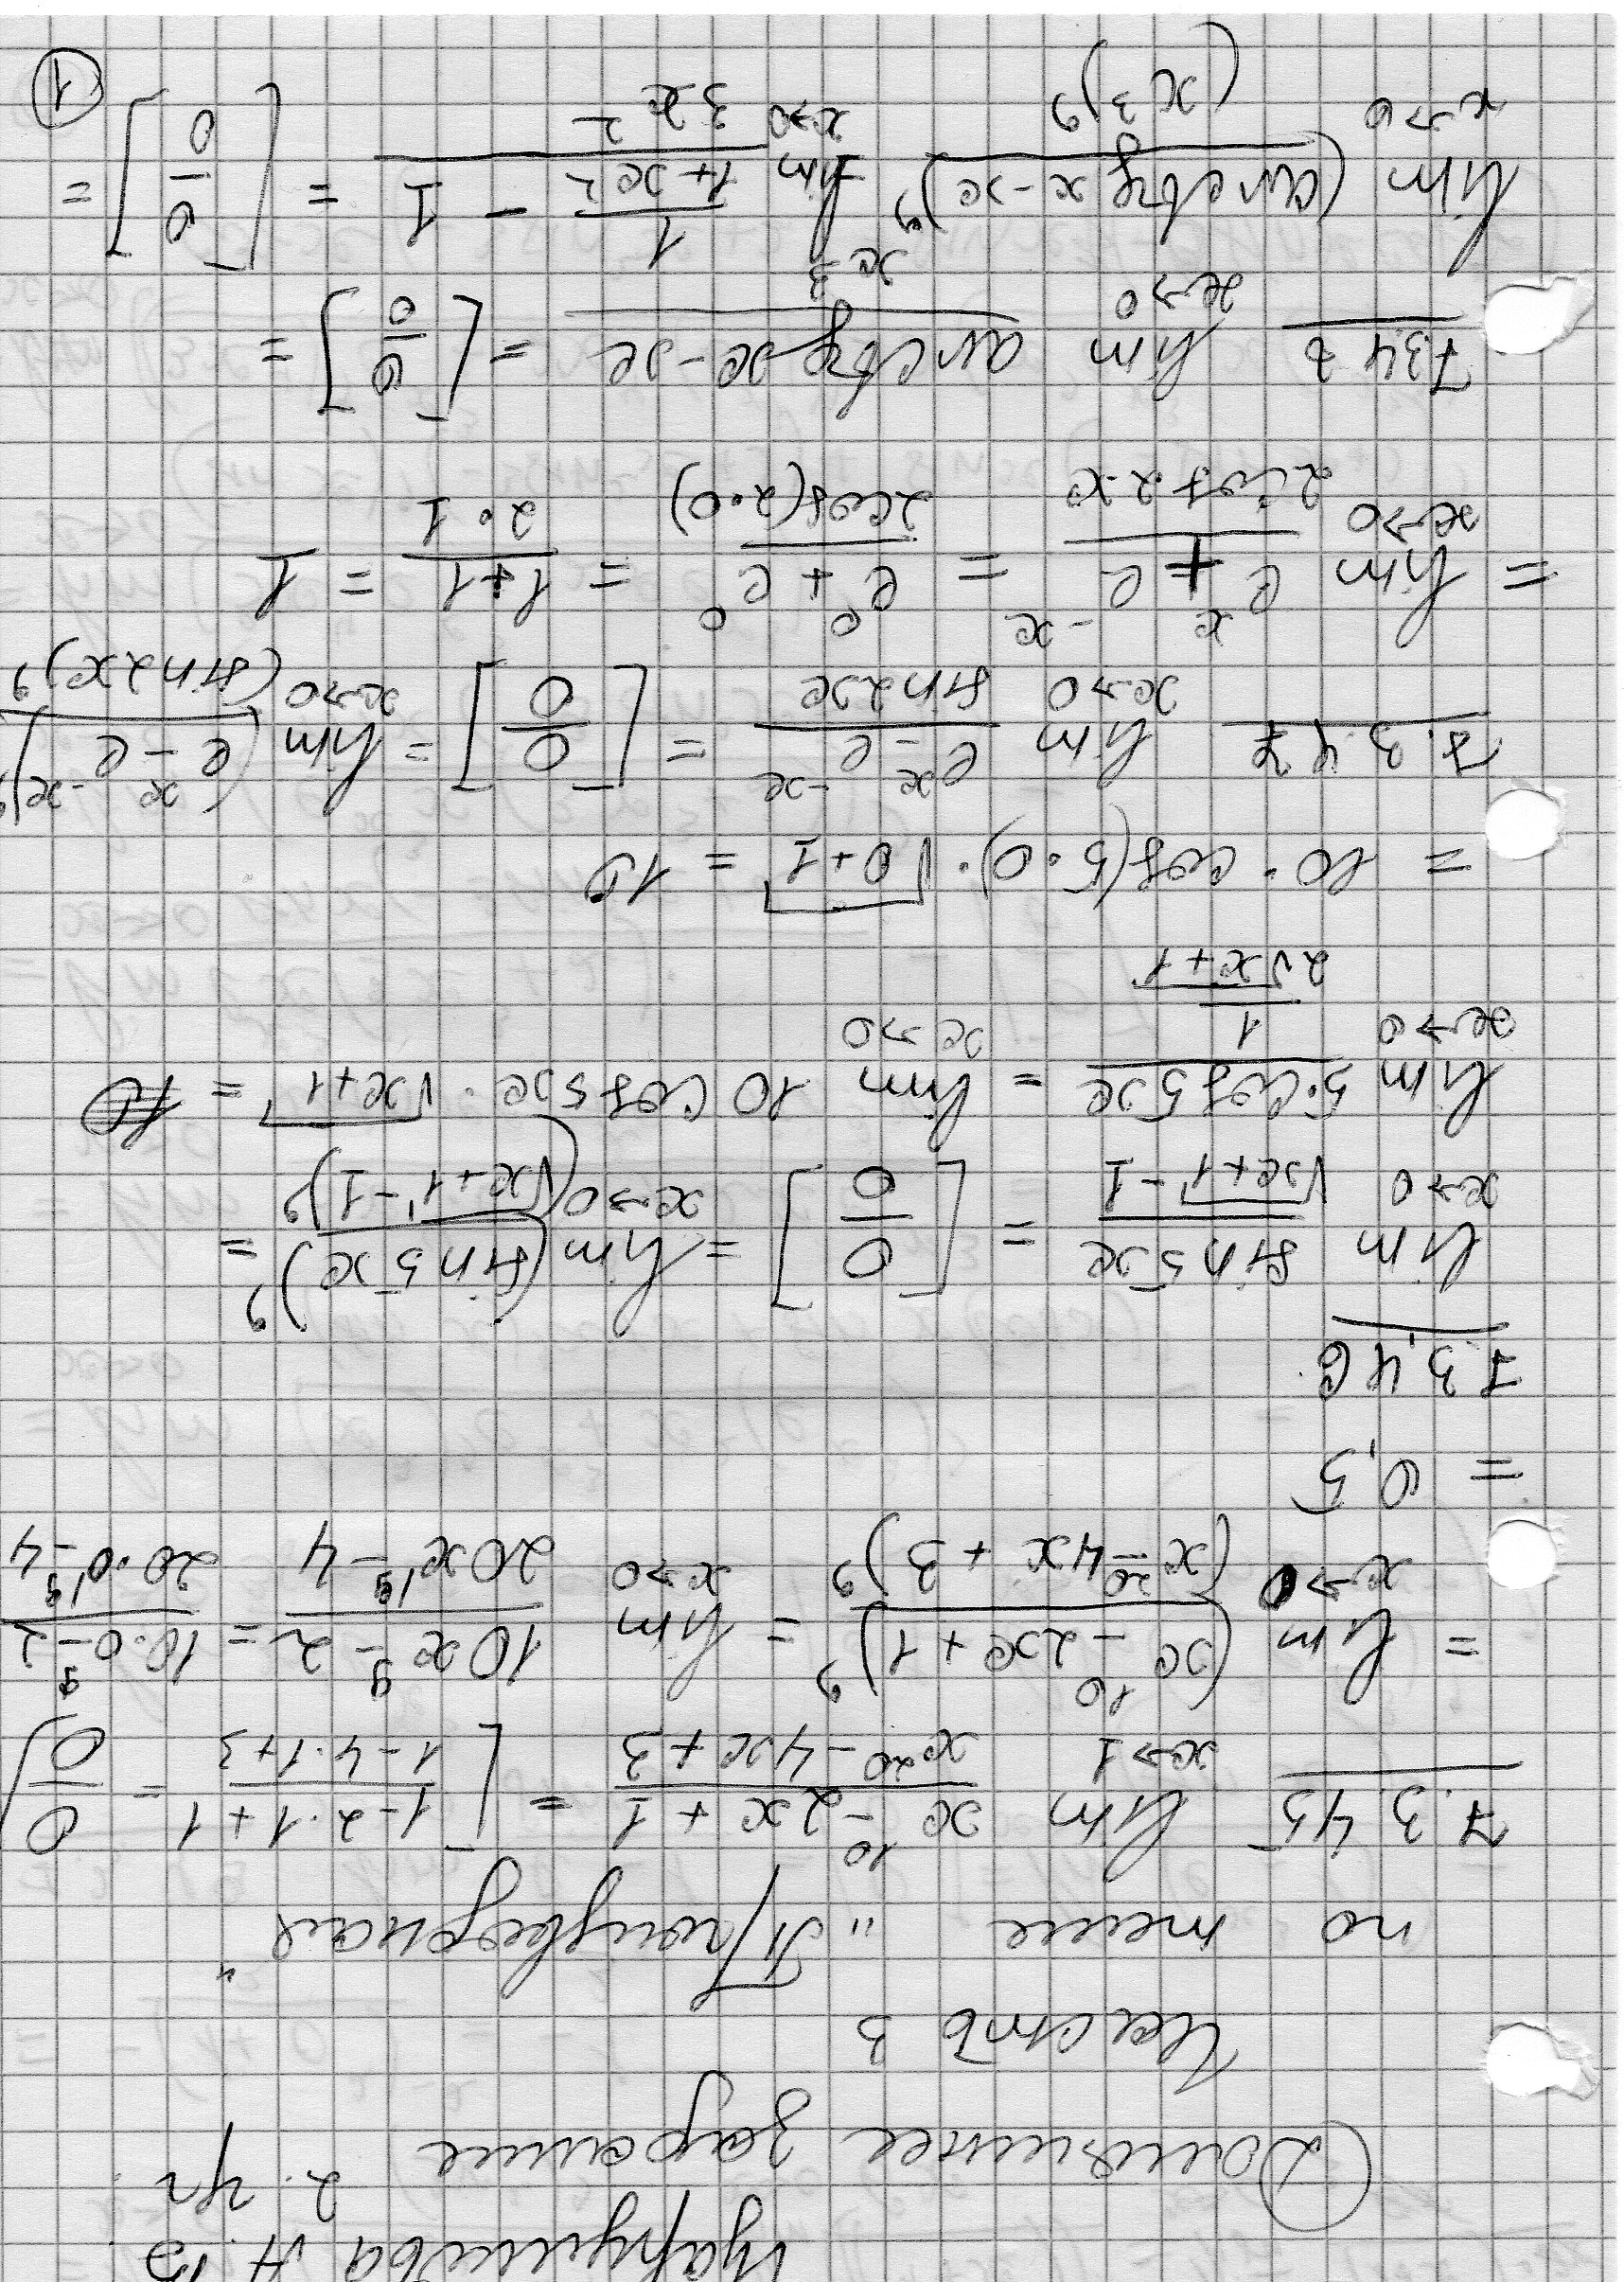 А. В.
2. гр.
Домашнее задание
Часть 3
по теме "Производная"
7.3.45 lim x→1 (x^10 - 2x + 1)/(x^20 - 4x + 3) = [(1 - 2·1 + 1)/(1 - 4·1 + 3) = 0/0]
= lim x→0 (x^10 - 2x + 1)'/(x^20 - 4x + 3)' = lim x→0 (10x^9 - 2)/(20x^19 - 4) = (10·0^9 - 2)/(20·0^19 - 4)
= 0,5
7.3.46
lim x→0 sin5x/(√(x+1) - 1) = [0/0] = lim x→0 (sin5x)'/(√(x+1) - 1)' =
lim x→0 (5·cos5x)/(1/(2√(x+1))) = lim x→0 10 cos5x · √(x+1) = 10
= 10 · cos(5·0) · √(0+1) = 10
7.3.47 lim x→0 (e^x - e^-x)/sin2x = [0/0] = lim x→0 (e^x - e^-x)'/(sin2x)'
= lim x→0 (e^x + e^-x)/(2cos2x) = (e^0 + e^0)/(2cos(2·0)) = (1+1)/(2·1) = 1
lim x→0 (arctg x - x)/x^3 = [0/0] =
lim x→0 (arctg x - x)'/(x^3)' = lim x→0 (1/(1+x^2) - 1)/(3x^2) = [0/0] =
1